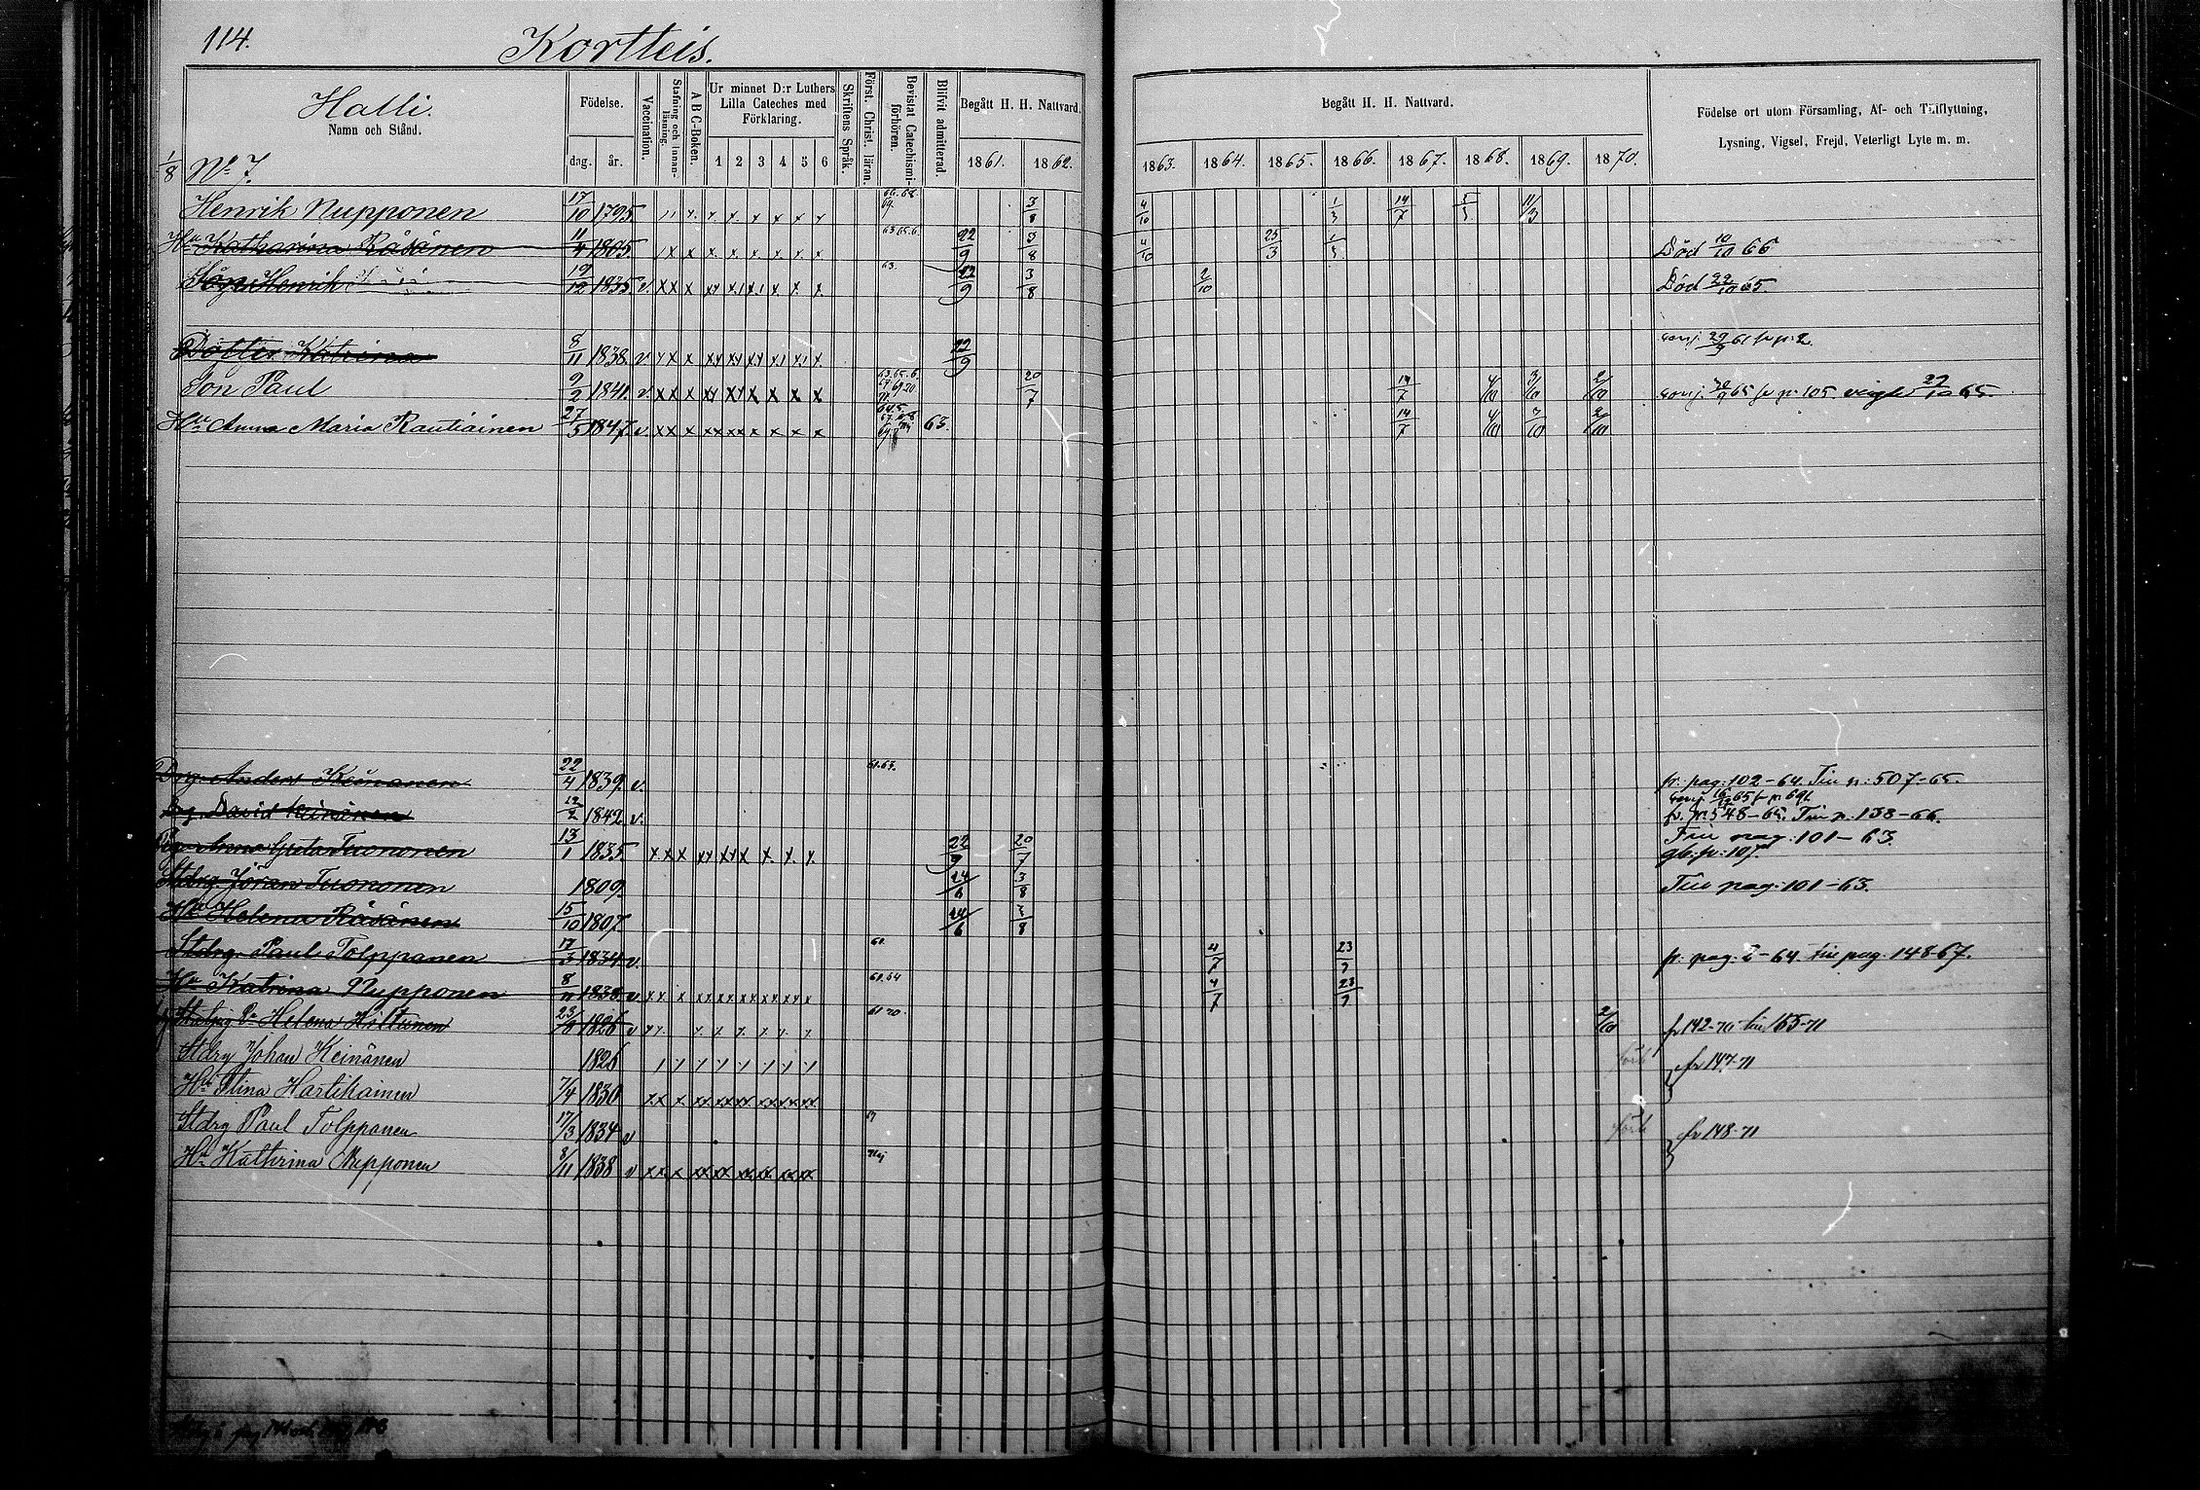 114.
Kortteis.
Halli.
Namn och Stånd.
Födelse.
dag. år.
Vaccination.
Stafning och Innan-läsning.
A B C-Boken.
Ur minnet D:r Luthers Lilla Cateches med Förklaring.
1 2 3 4 5 6
Skriftens Språk.
Först. Christ. läran.
Bevistat Catechismi-förhören.
Blifvit admitterad.
Begått H. H. Nattvard.
1861. 1862.
Begått H. H. Nattvard.
1863. 1864. 1865. 1866. 1867. 1868. 1869. 1870.
Födelse ort utom Församling, Af- och Tillflyttning,
Lysning, Vigsel, Frejd, Veterligt Lyte m. m.
1/8 No 7.
Henrik Nupponen 17/10 1795 3/8 4/10 1/3 14/7 11/3
Hu Katharina Räsänen 11/4 1805 63.65.6. 22/9 3/8 4/10 25/3 1/3 Död 10/10 66
Son Henrik 19/12 1835 v. 63. 22/9 3/8 2/10 Död 22/10 65.
Dotter Katrina 8/11 1838 v 22/9
Son Paul 9/2 1841 v. 20/7 14/7 4/10 3/10 2/10 65 p: 105 vigde 22/10 65.
Hu Anna Maria Rautiainen 27/5 1847 v 63. 14/7 4/10 3/10 2/10
Drg. Anders Keinanen 22/4 1839 v. 61.63. fr. pag: 102-64. Tiu p: 507-65.
Drg. David Keinänen 1842 v. fr. p: 548-65. Tiu p: 138-66.
Pig. Anna Greta Tuononen 13/1 1835. 22/9 20/7 Tiu pag: 101-63.
Stdrg. Jöran Tuononen 1809. 24/6 3/8 Tiu pag: 101-63.
Hu Helena Räsänen 15/10 1807. 24/6 3/8
Stdrg. Paul Tolppanen 17/3 1834 v. 61. 4/7 23/9 fr. pag. 2-64. tiu pag. 148-67.
Hu Katrina Nupponen 8/11 1838 v 61.64 4/7 23/9
Helena Hiltunen 23/8 1826 v 61 70. 2/10 fr 142-70 tiu 165-71
Stdrg Johan Keinänen 1826 fr 147-71
Hu Stina Hartikainen 7/4 1830
Stdrg Paul Tolppanen 17/3 1834 v fr 148-71
Hu Kathrina Nupponen 8/11 1838 v